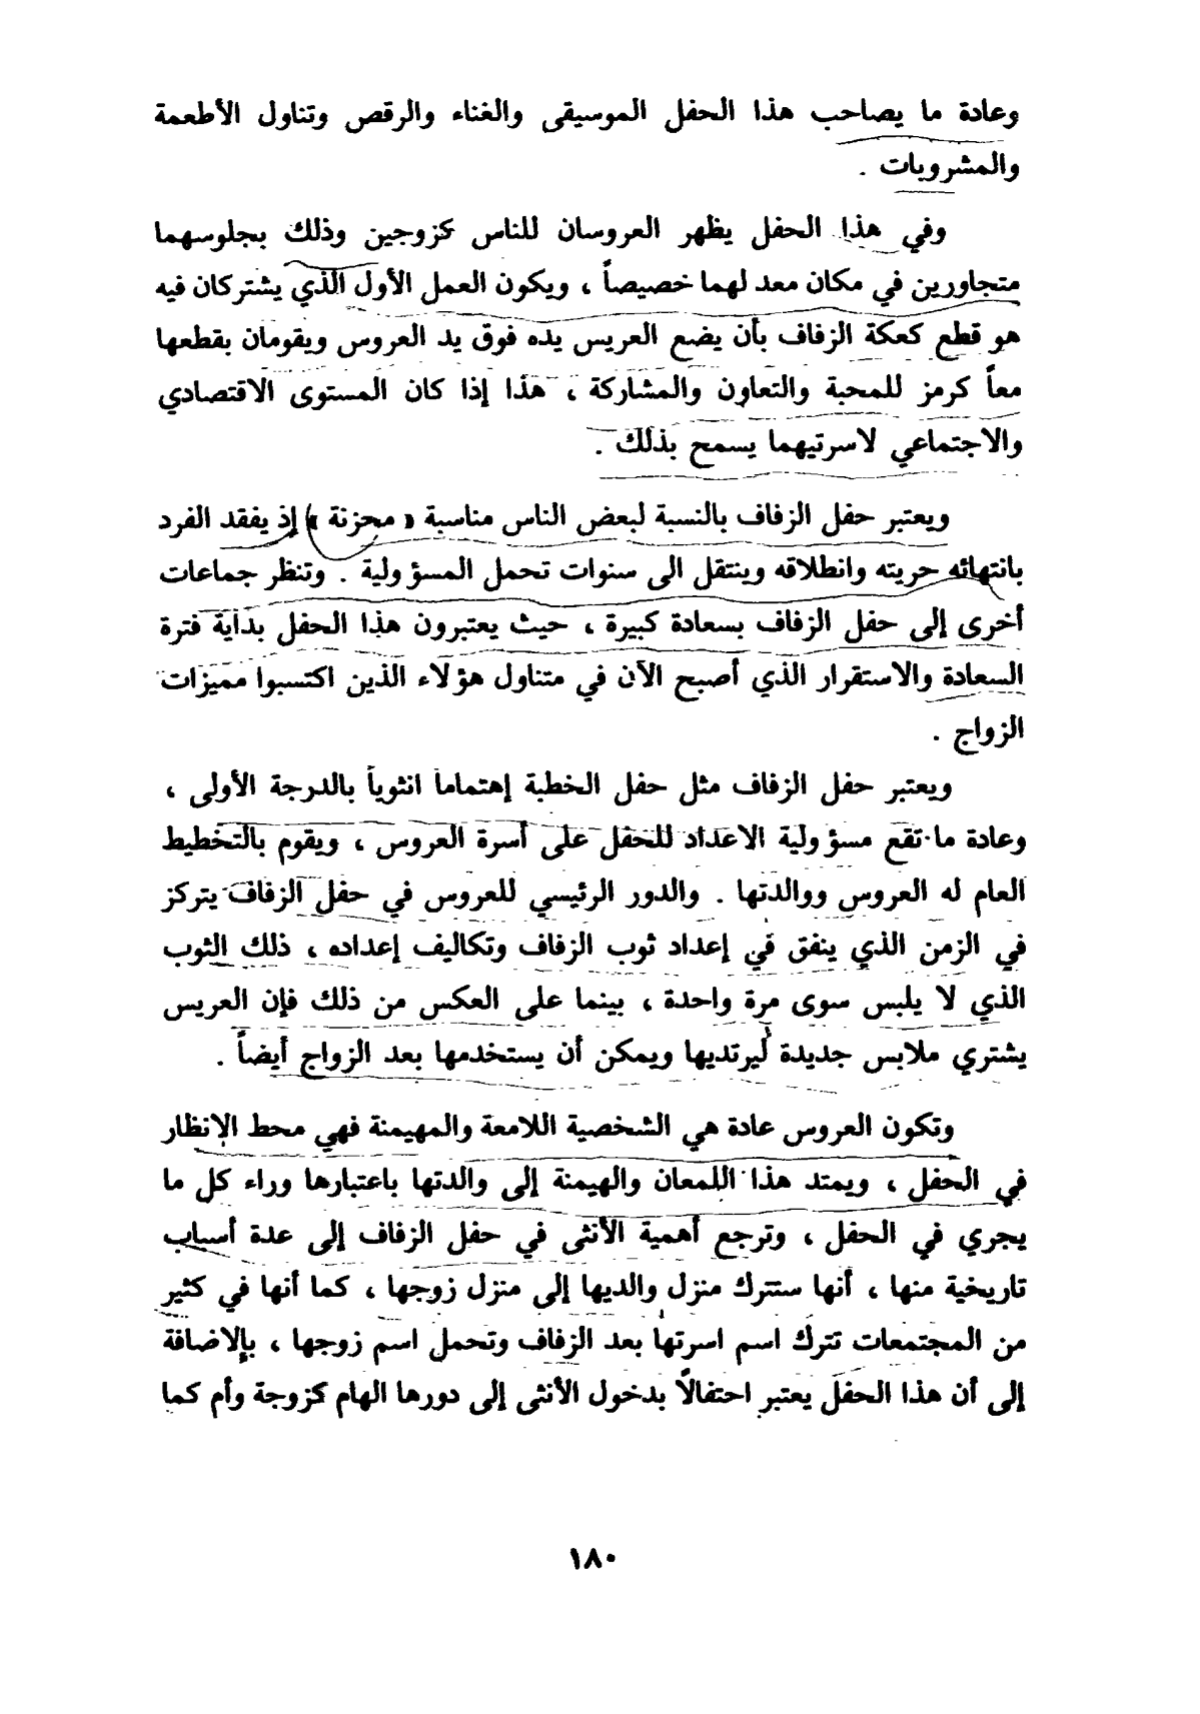 وعادة ما يصاحب هذا الحفل الموسيقى والغناء والرقص وتناول الأطعمة
والمشروبات .
وفي هذا الحفل يظهر العروسان للناس كزوجين وذلك بجلوسهما
متجاورين في مكان معد لهما خصيصاً ، ويكون العمل الأول الذي يشتركان فيه
هو قطع كعكة الزفاف بأن يضع العريس يده فوق يد العروس ويقومان بقطعها
معاً كرمز للمحبة والتعاون والمشاركة ، هذا إذا كان المستوى الاقتصادي
والاجتماعي لاسرتيهما يسمح بذلك .
ويعتبر حفل الزفاف بالنسبة لبعض الناس مناسبة « محزنة » إذ يفقد الفرد
بانتهائه حريته وانطلاقه وينتقل الى سنوات تحمل المسؤولية . وتنظر جماعات
أخرى إلى حفل الزفاف بسعادة كبيرة ، حيث يعتبرون هذا الحفل بداية فترة
السعادة والاستقرار الذي أصبح الآن في متناول هؤلاء الذين اكتسبوا مميزات
الزواج .
ويعتبر حفل الزفاف مثل حفل الخطبة إهتماماً انثوياً بالدرجة الأولى ،
وعادة ما تقع مسؤولية الاعداد للحفل على أسرة العروس ، ويقوم بالتخطيط
العام له العروس ووالدتها . والدور الرئيسي للعروس في حفل الزفاف يتركز
في الزمن الذي ينفق في إعداد ثوب الزفاف وتكاليف إعداده ، ذلك الثوب
الذي لا يلبس سوى مرة واحدة ، بينما على العكس من ذلك فإن العريس
يشتري ملابس جديدة ليرتديها ويمكن أن يستخدمها بعد الزواج أيضاً .
وتكون العروس عادة هي الشخصية اللامعة والمهيمنة فهي محط الإنظار
في الحفل ، ويمتد هذا اللمعان والهيمنة إلى والدتها باعتبارها وراء كل ما
يجري في الحفل ، وترجع أهمية الأنثى في حفل الزفاف إلى عدة أسباب
تاريخية منها ، أنها ستترك منزل والديها إلى منزل زوجها ، كما أنها في كثير
من المجتمعات تترك اسم اسرتها بعد الزفاف وتحمل اسم زوجها ، بالاضافة
إلى أن هذا الحفل يعتبر احتفالاً بدخول الأنثى إلى دورها الهام كزوجة وأم كما
١٨٠